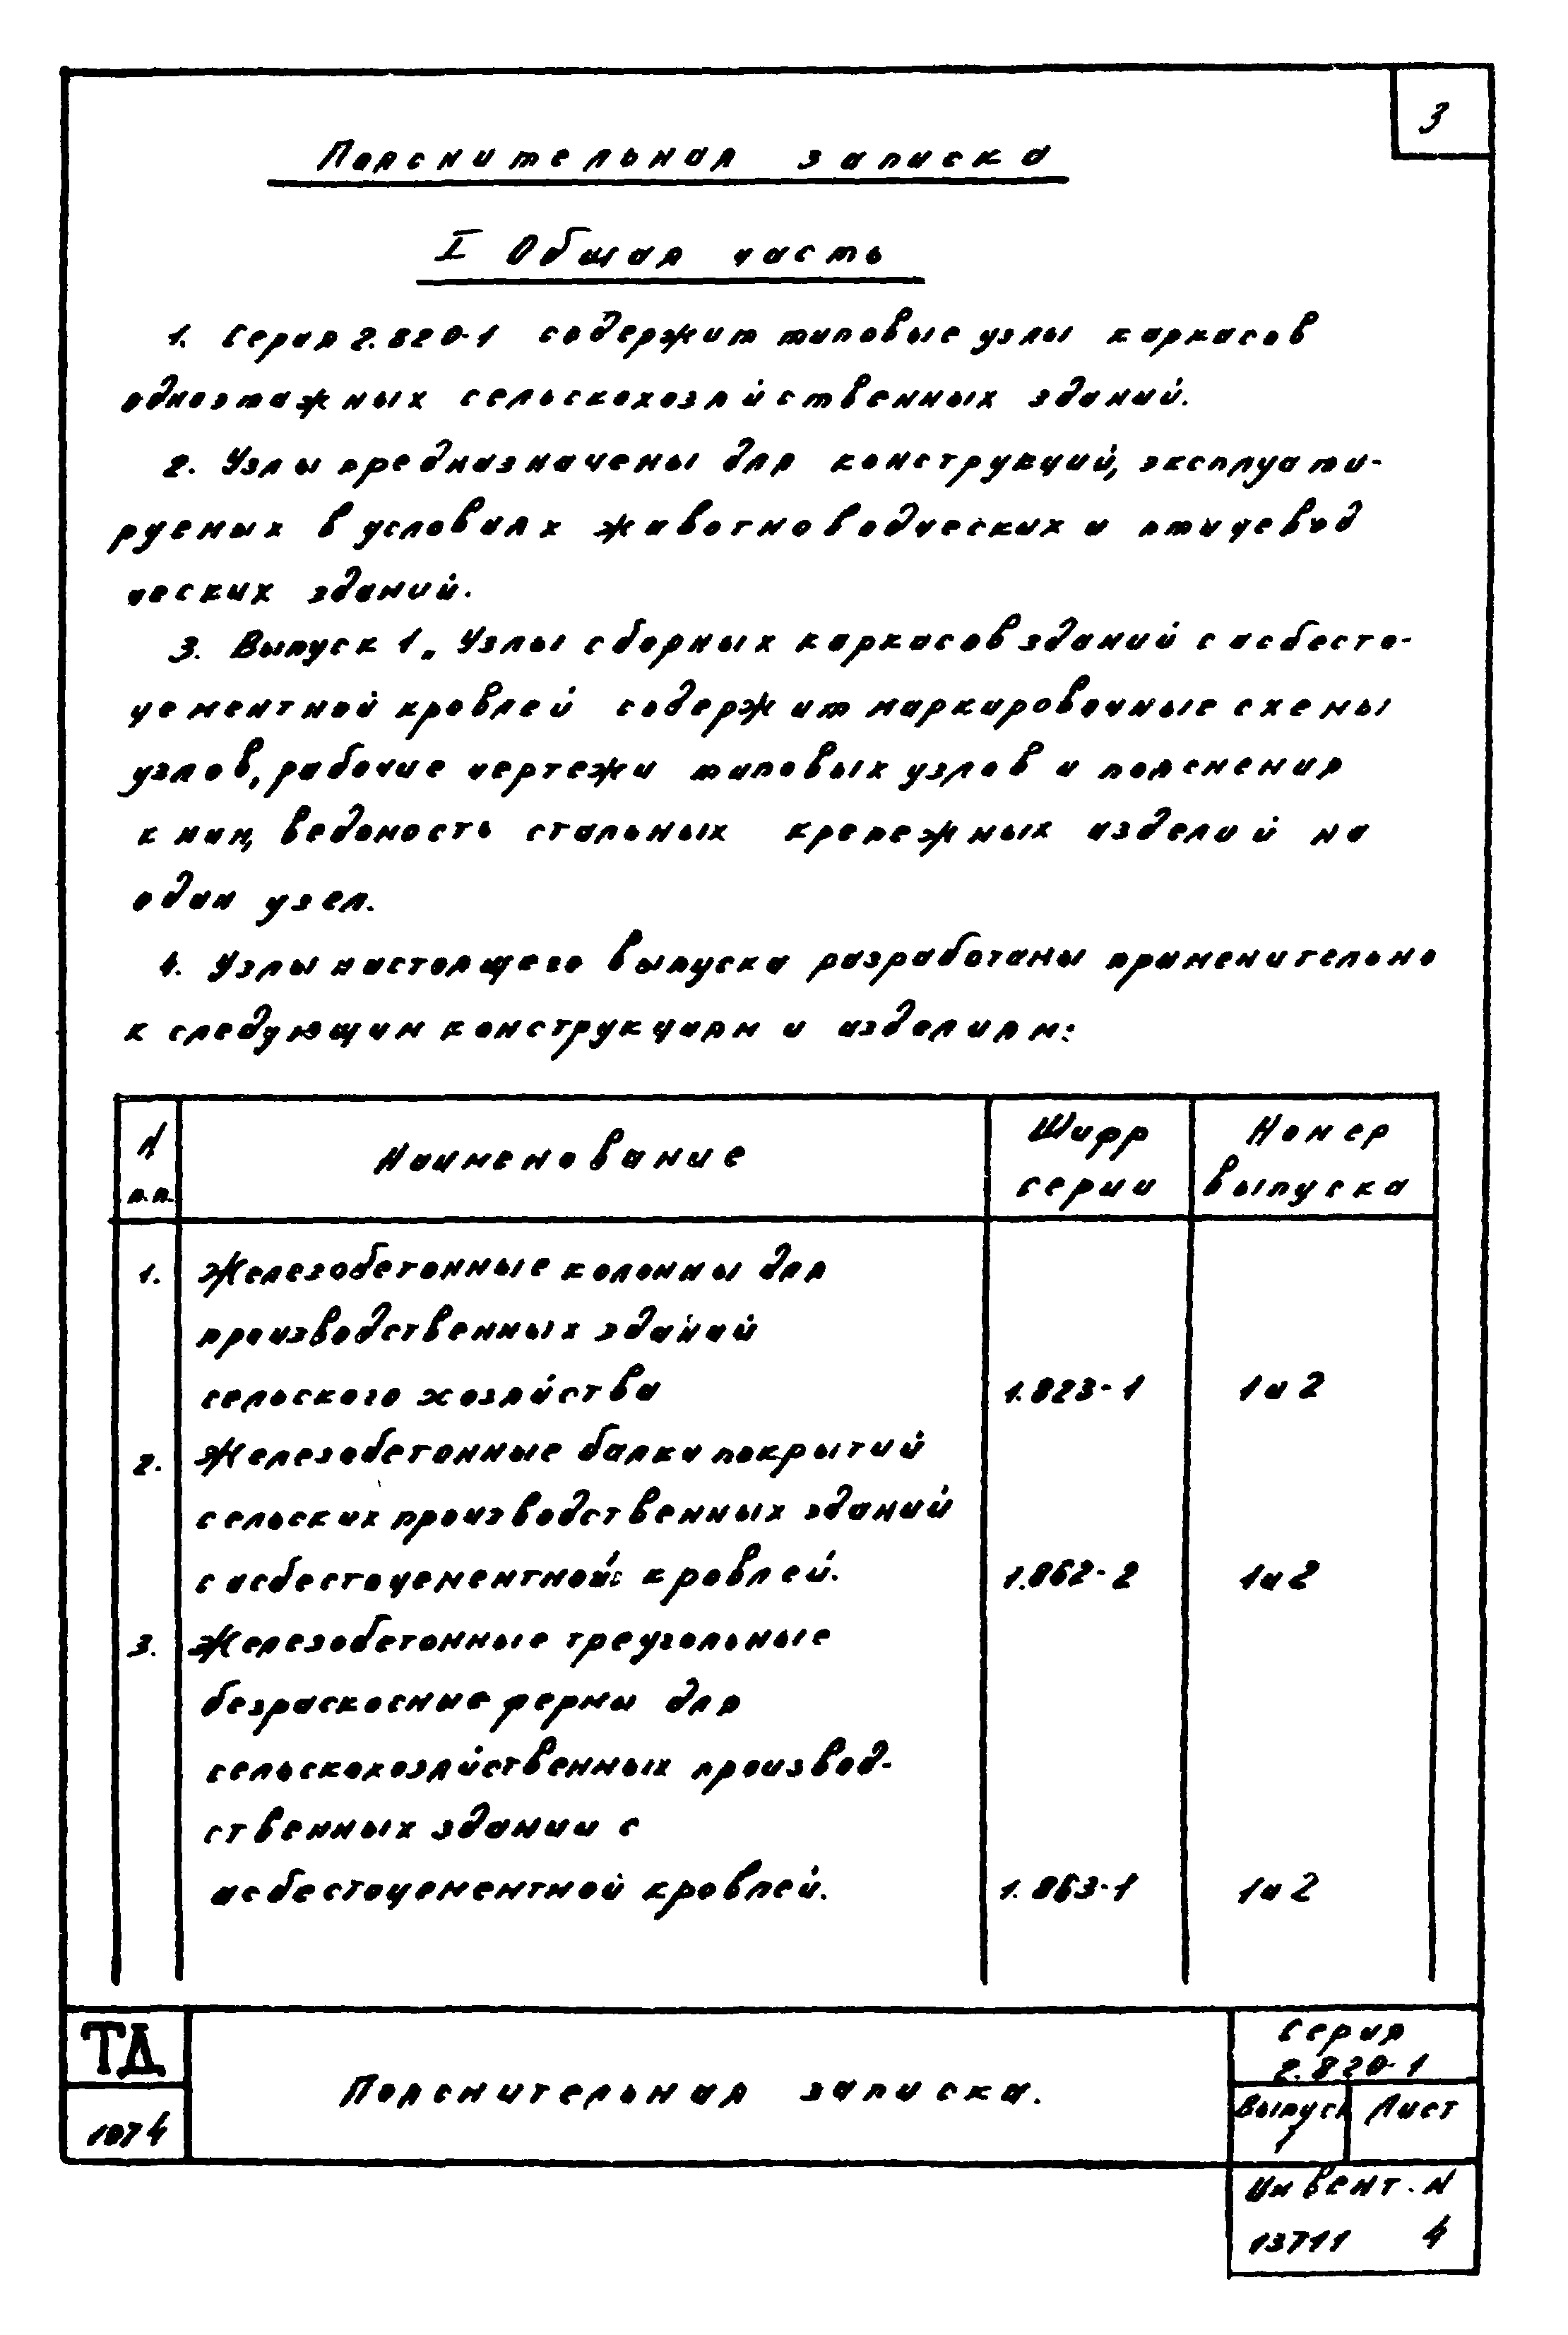 3
Пояснительная записка
I Общая часть
1. Серия 2.820-1 содержит типовые узлы каркасов
одноэтажных сельскохозяйственных зданий.
2. Узлы предназначены для конструкций, эксплуати-
руемых в условиях животноводческих и птицевод
ческих зданий.
3. Выпуск 1 „Узлы сборных каркасов зданий с асбесто-
цементной кровлей содержит маркировочные схемы
узлов, рабочие чертежи типовых узлов и пояснения
к ним, ведомость стальных крепежных изделий на
один узел.
4. Узлы настоящего выпуска разработаны применительно
к следующим конструкциям и изделиям:
N п.п. Наименование Шифр серии Номер выпуска
1. Железобетонные колонны для
производственных зданий
сельского хозяйства 1.823-1 1 и 2
2. Железобетонные балки покрытий
сельских производственных зданий
с асбестоцементной кровлей. 1.862-2 1 и 2
3. Железобетонные треугольные
безраскосные фермы для
сельскохозяйственных производ-
ственных здании с
асбестоцементной кровлей. 1.863-1 1 и 2
ТД
1974
Пояснительная записка.
Серия
2.820-1
Выпуск Лист
1
Инвент. N
13711 4